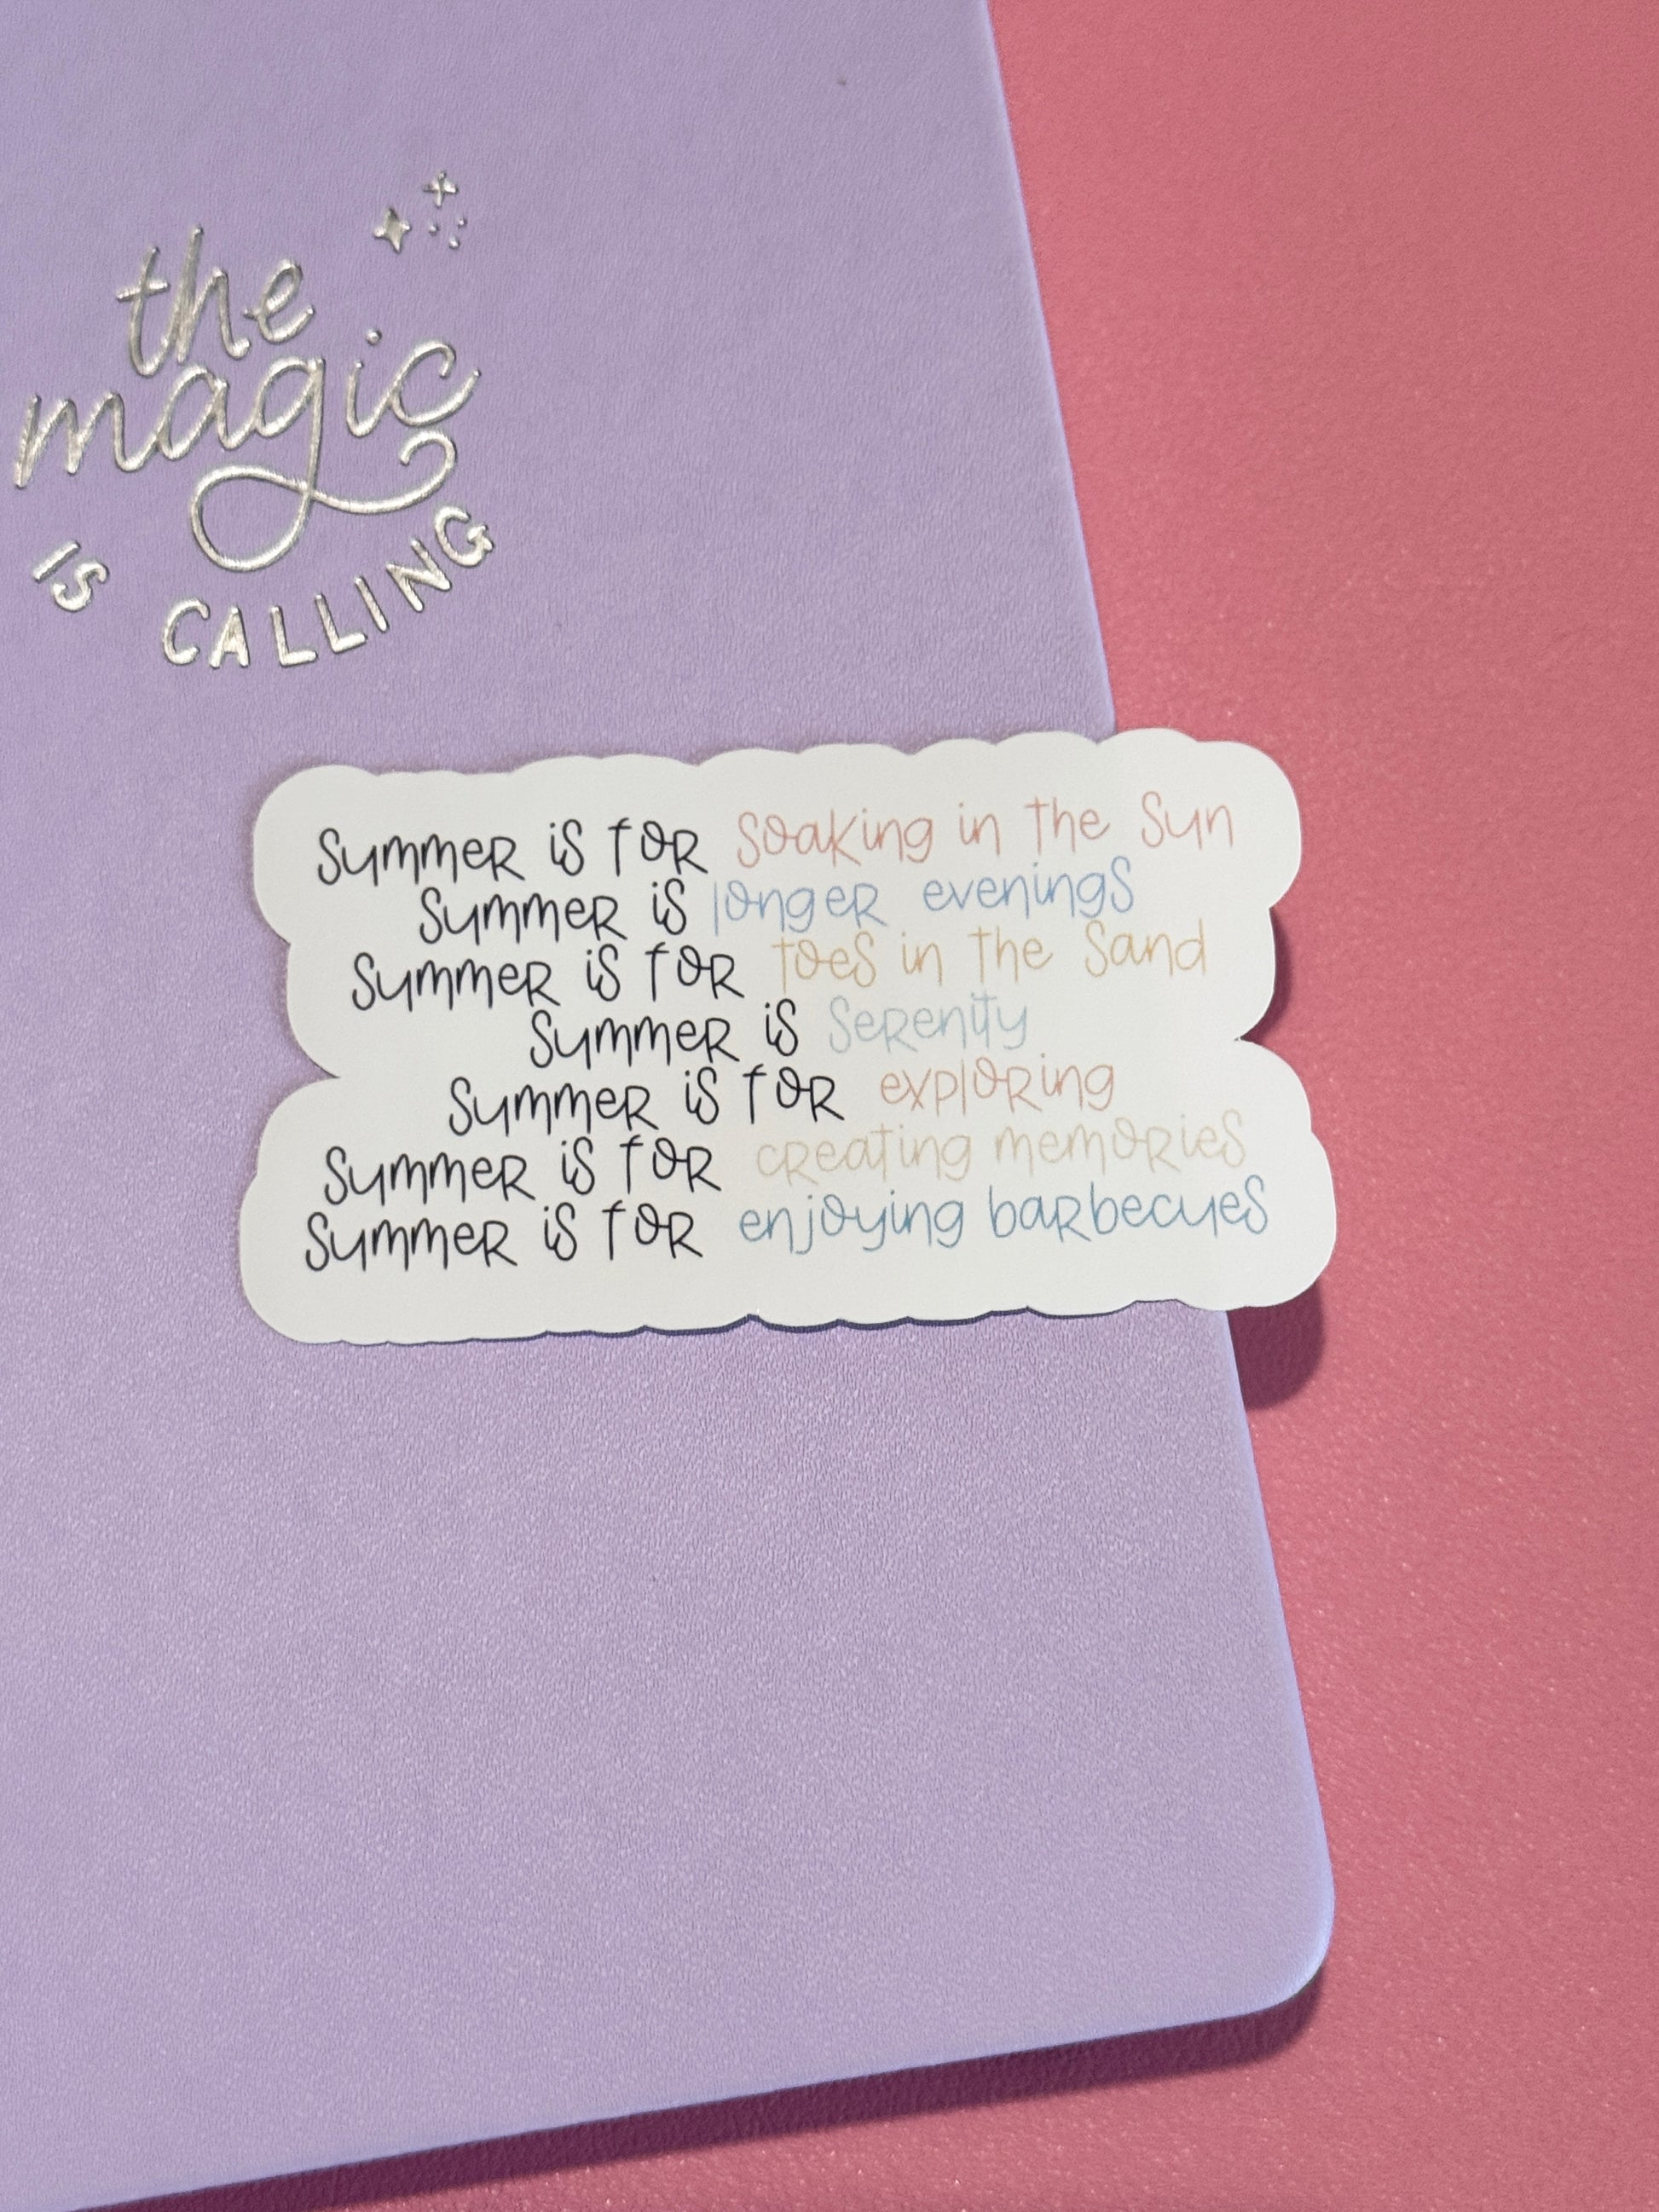 the
magic
IS CALLING
Summer is for soaking in the sun
Summer is longer evenings
Summer is for toes in the sand
Summer is serenity
Summer is for exploring
Summer is for creating memories
Summer is for enjoying barbecues